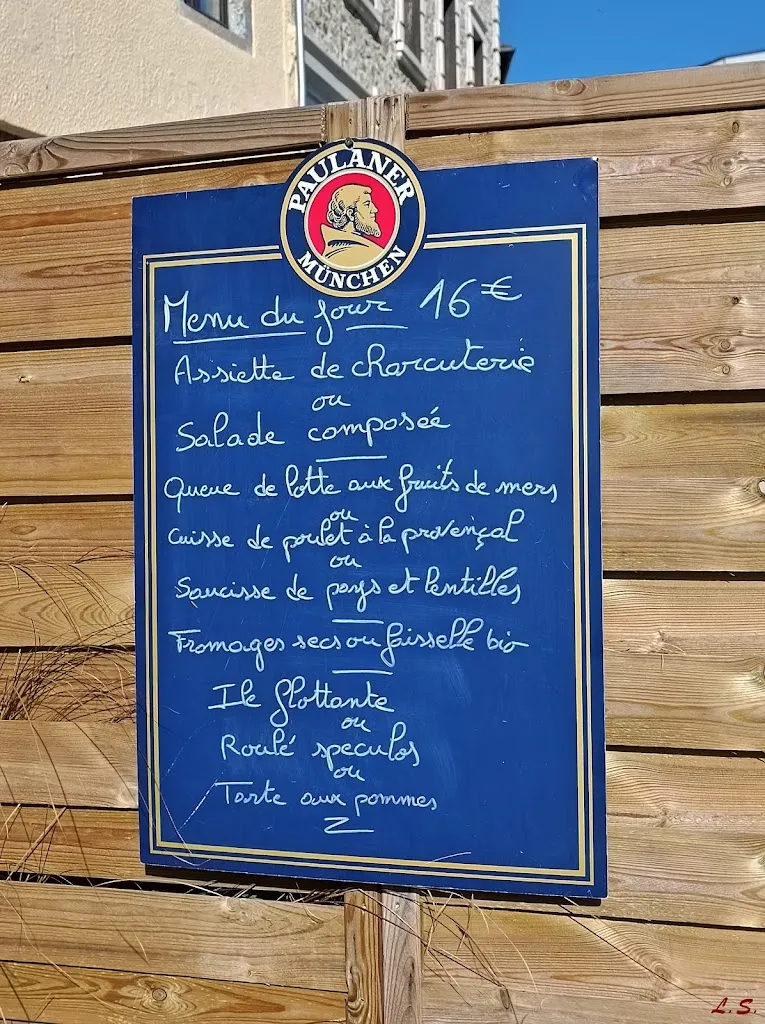 PAULANER
MÜNCHEN
Menu du jour 16€
Assiette de charcuterie
ou
Salade composée
Queue de lotte aux fruits de mers
ou
Cuisse de poulet à la provençal
ou
Saucisse de pays et lentilles
Fromages secs ou faisselle bio
Ile flottante
ou
Roulé speculos
ou
Tarte aux pommes
L.S.